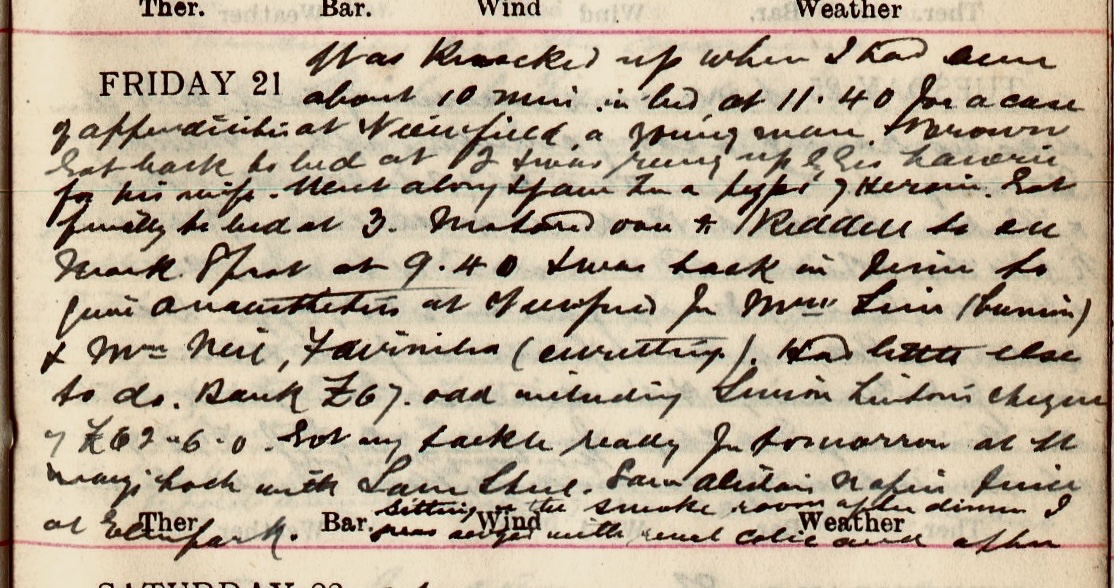 Ther. Bar. Wind Weather
FRIDAY 21 Was knocked up when I had been
about 10 min. in bed at 11.40 for a case
of appendicitis at Viewfield, a young man Brown
Got back to bed at 2 & was rung up
for his wife. Went along & gave her a hypo of Heroin. Got
finally to bed at 3. Motored over to Riddell to see
Mark Sprot at 9.40 & was back in time to
give anaesthetics at Viewfield for Mrs
& Mrs Neil, (curetting). Had little else
to do. Bank £67. odd including Simon Linton's cheque
of £62-6-0. Got my tackle ready for tomorrow at St
Mary's Loch with Sam. Sam dined
Sitting in the smoke room after dinner I
at Elm park.
Ther. Bar. Wind Weather
was seized with renal colic and after